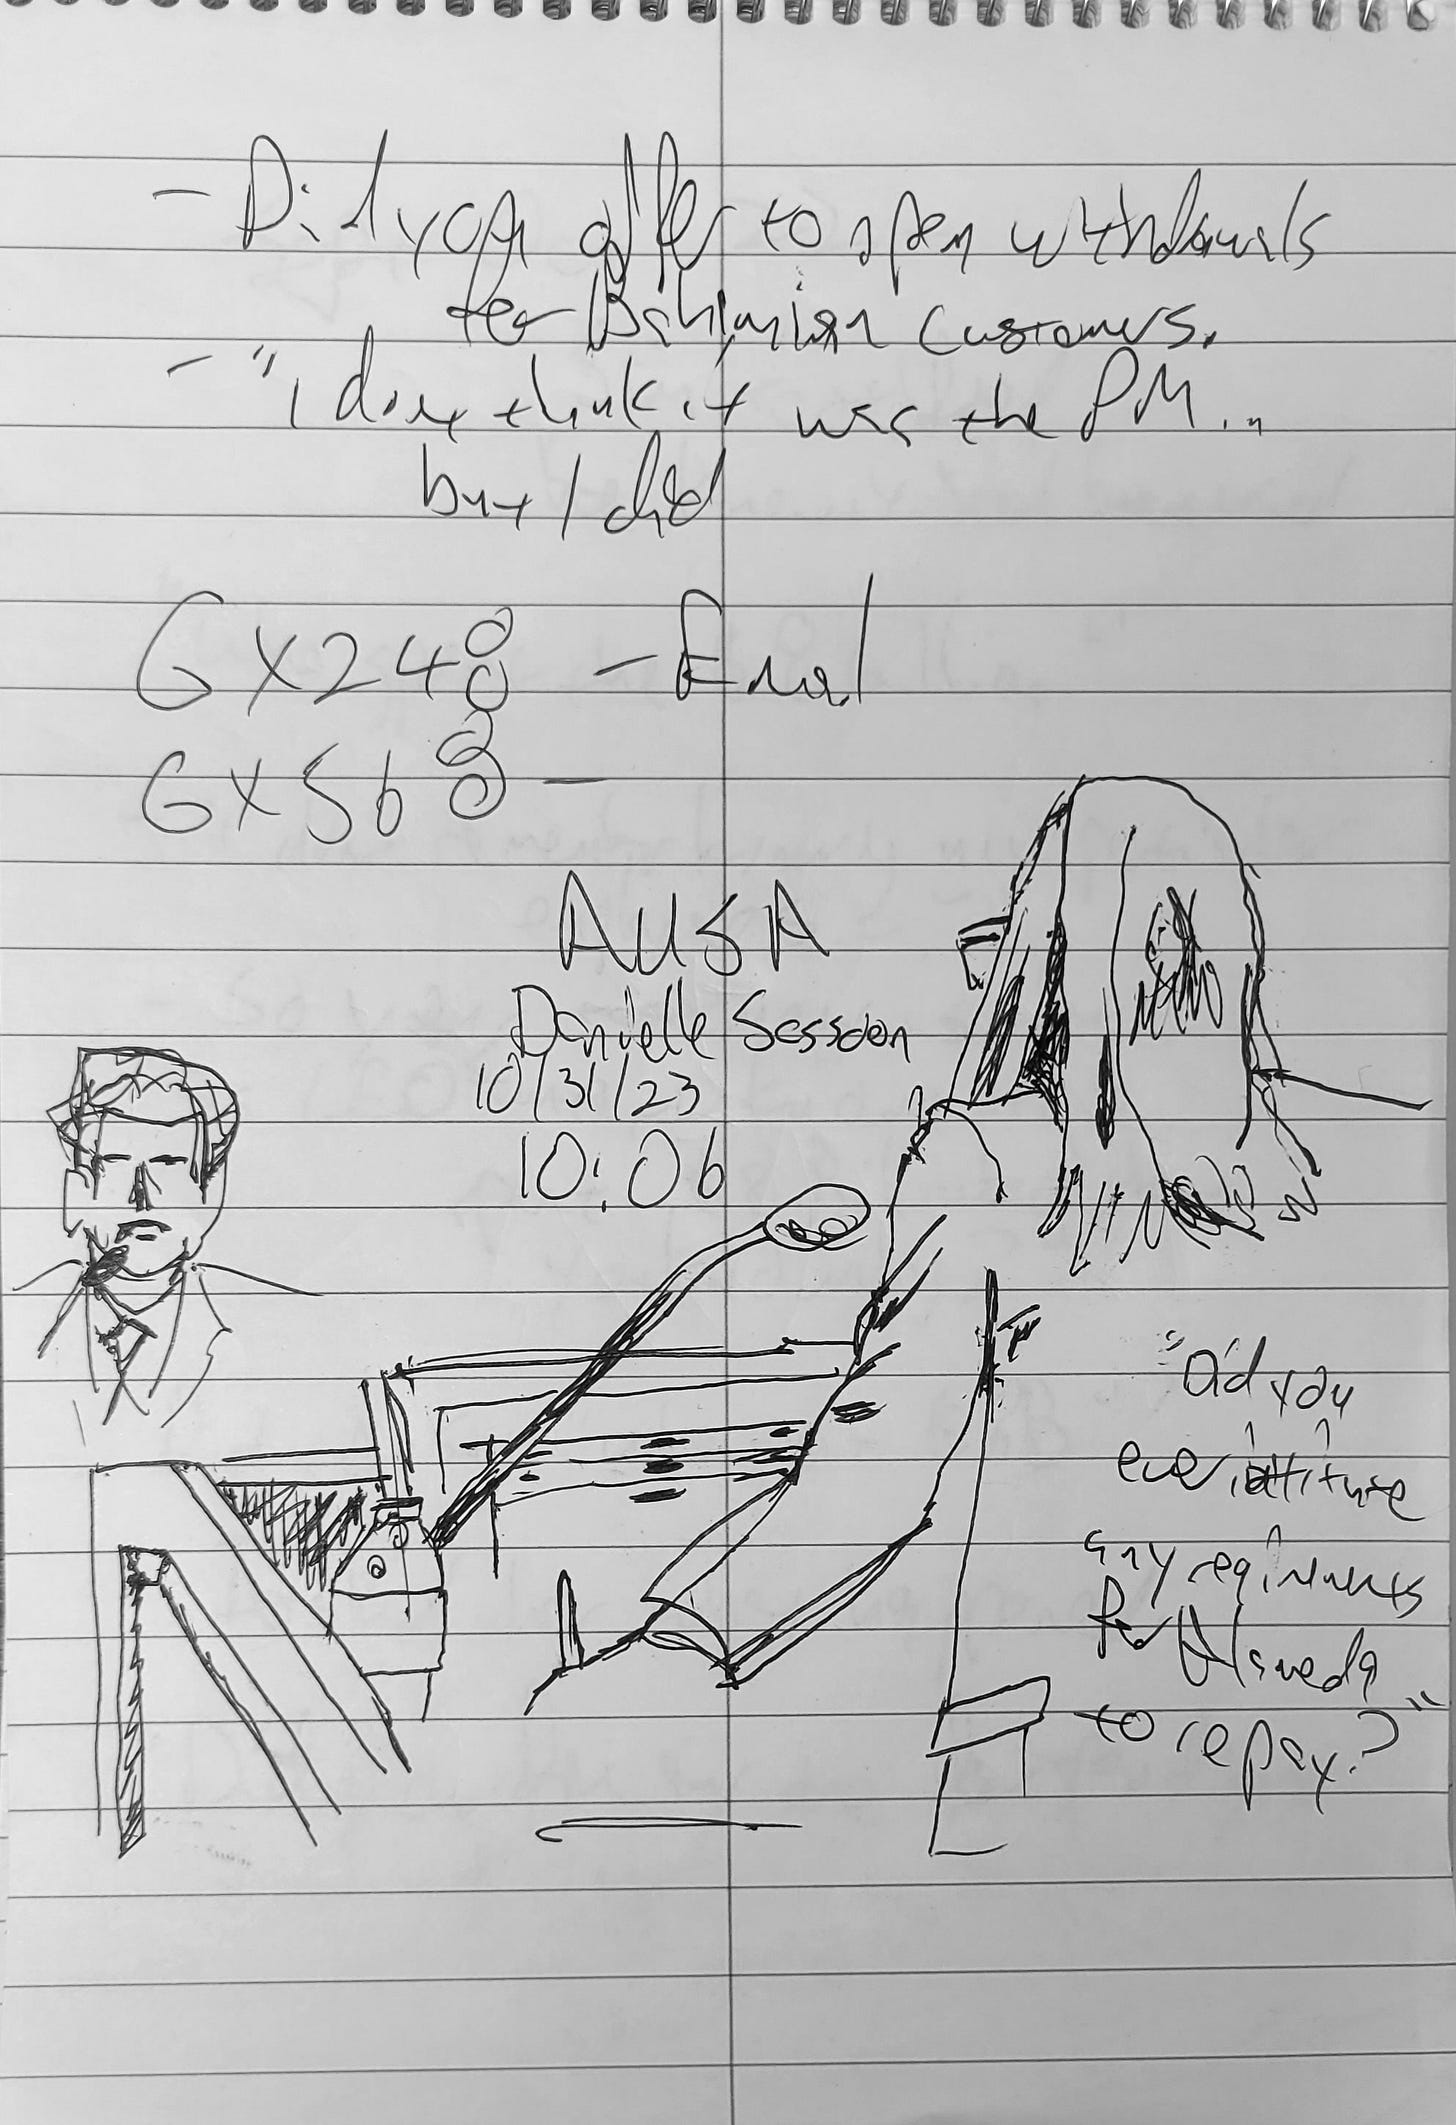 - Did you offer to open withdrawals
for Bahamian customers.
- "I don't think it was the PM...
but I did
GX248 - Email
GX568 -
AUSA
Danielle Sassoon
10/31/23
10:06
"Did you
ever institute
any requirments
for Alameda
to repay?"